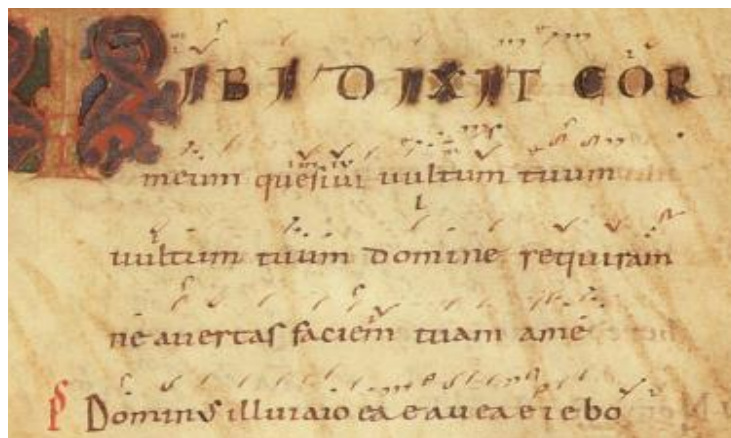 TIBI DIXIT COR
meum quesiui uultum tuum
uultum tuum domine requiram
ne auertas faciem tuam ame
Ps Dominus illuiaio ea e a u ea e i e bo